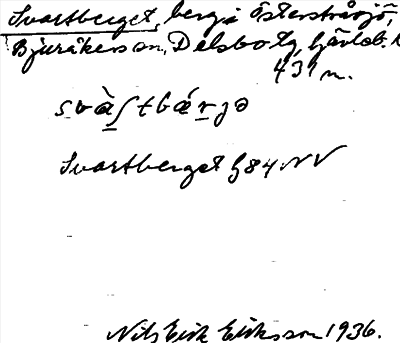 Svartberget, berg i Österstråsjö,
Bjuråkers sn, Delsbo tg, Gävleb. l.
431 m.
svàʃtbǽrjə
Svartberget G84 NV
Nils Erik Eriksson 1936.